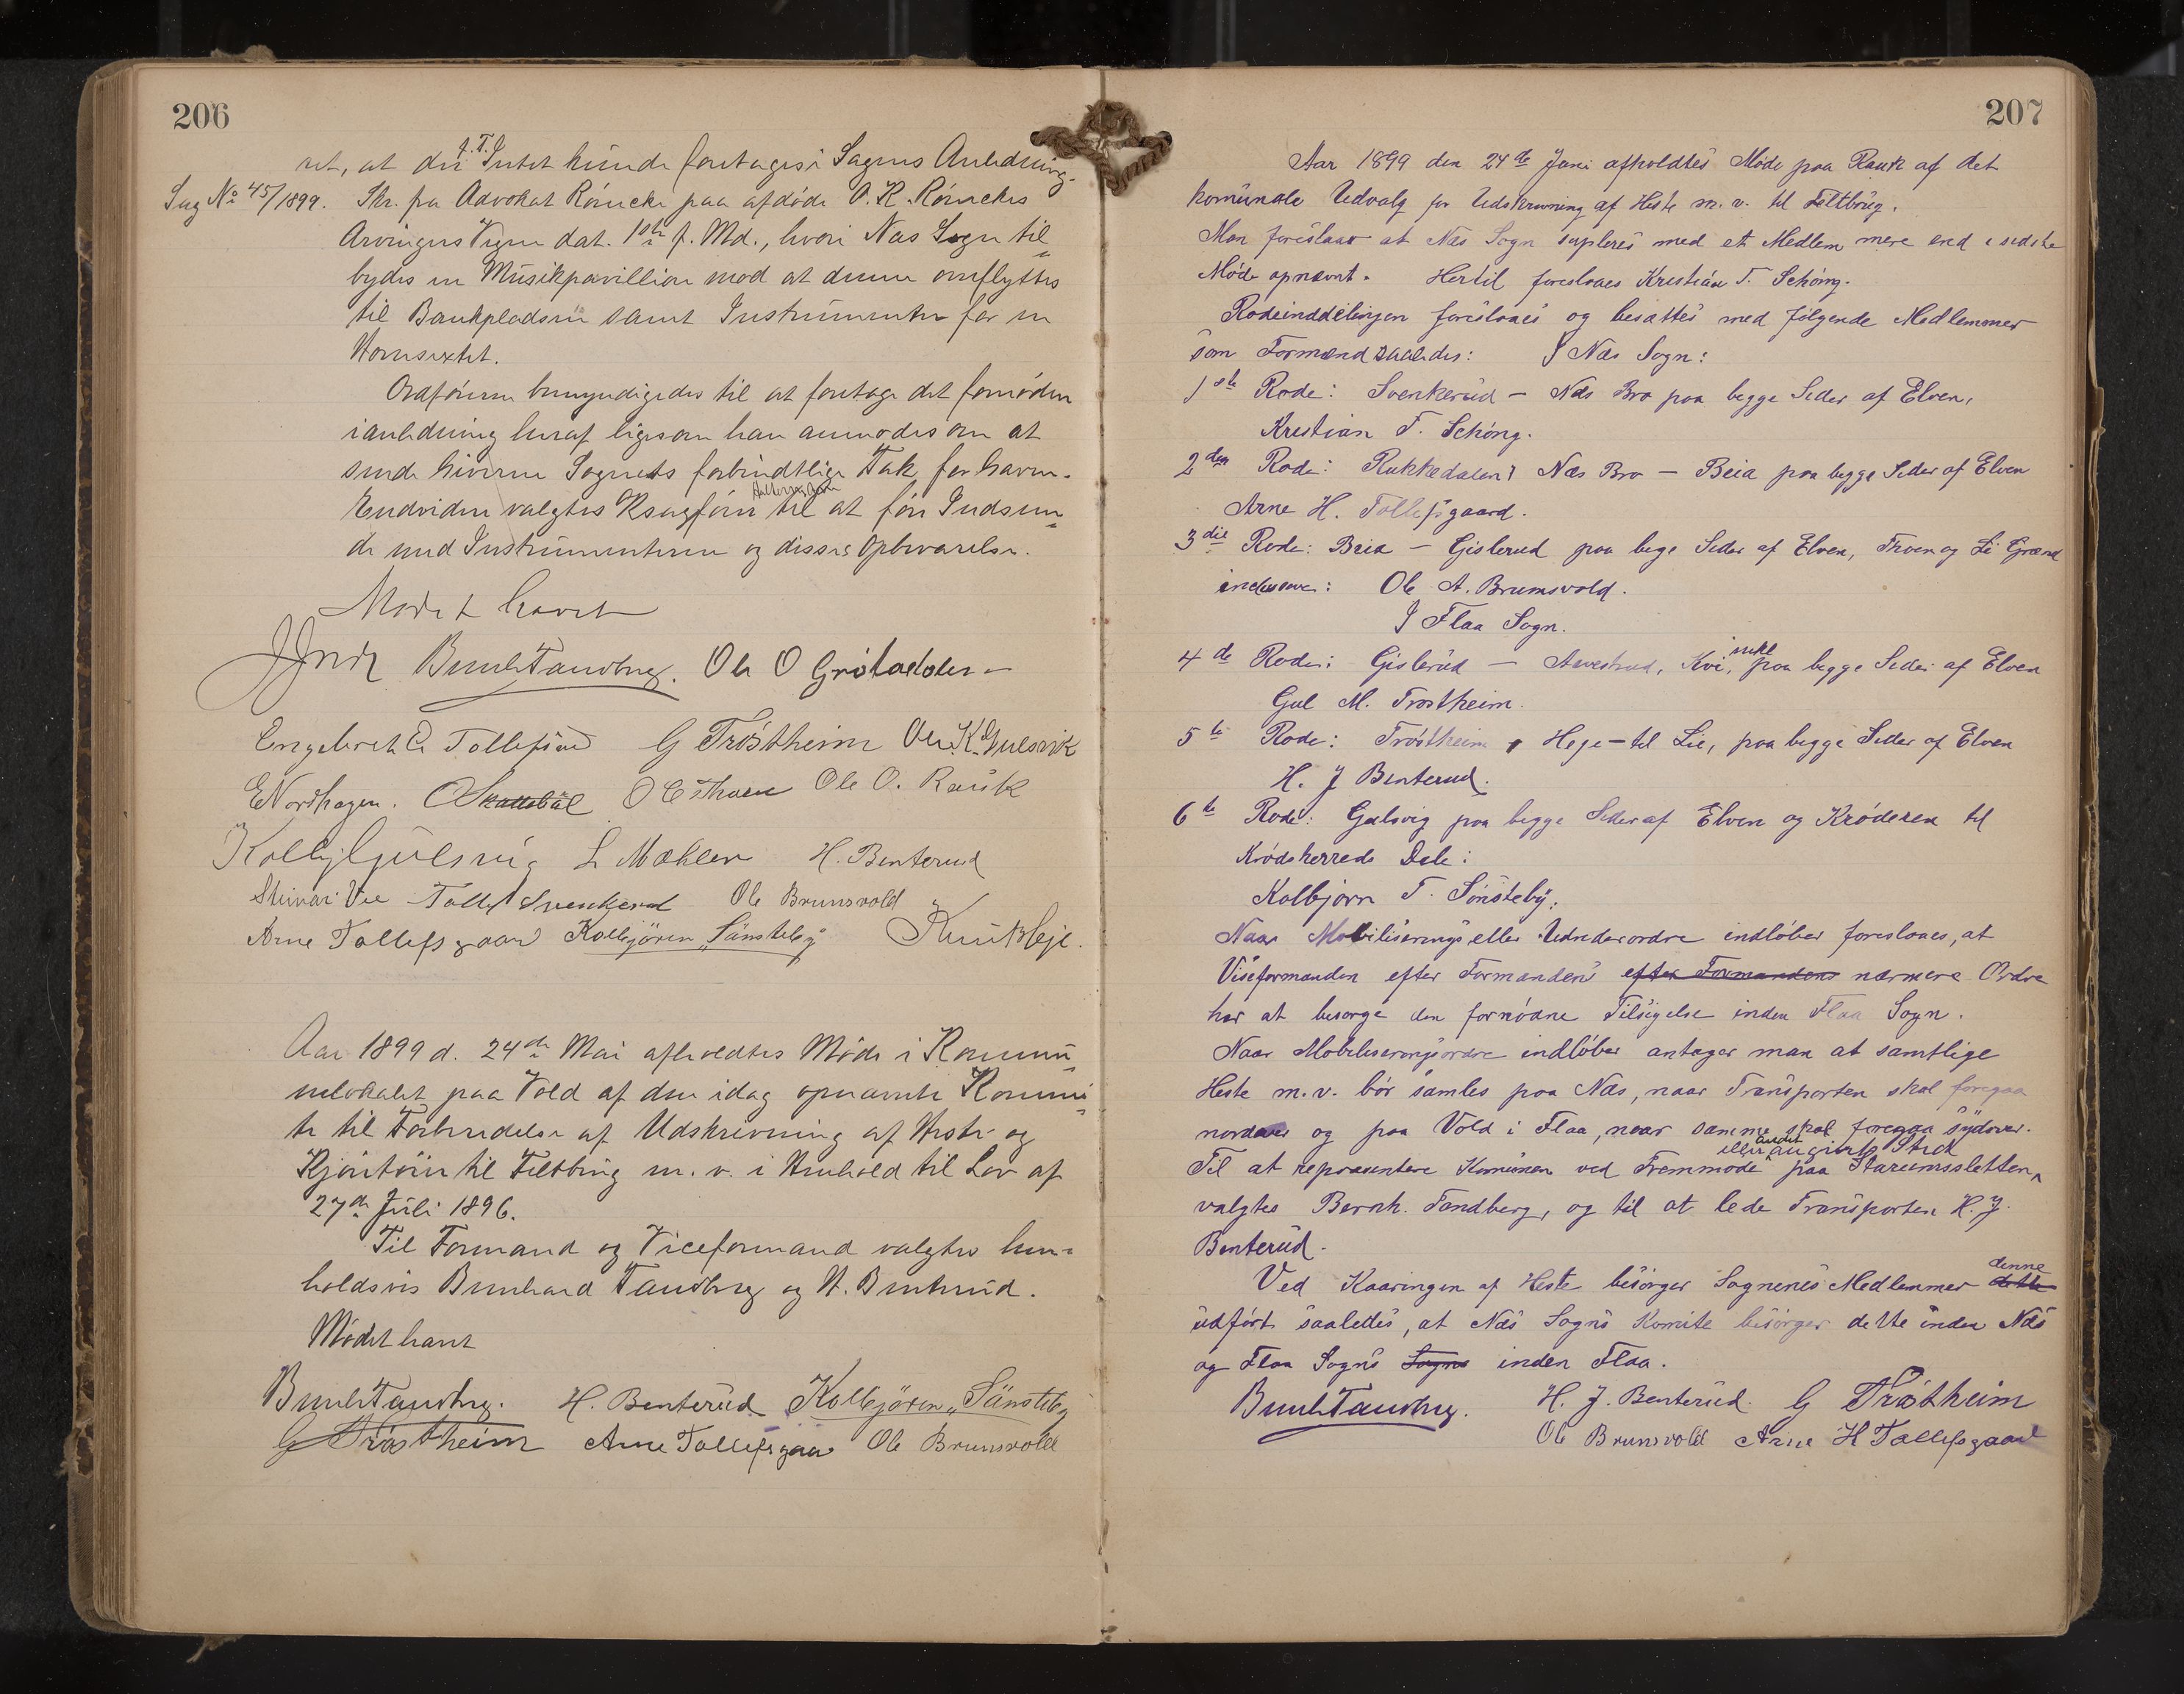 206
ret, at der f. T. Intet kunde foretages i Sagens Anledning.
Sag No 45/1899. Skr. fra Advokat Rømcke paa afdøde O. K. Rømckes
Arvingers Vegne dat. 1ste f. Md., hvori Næs Sogn til=
bydes en Musikpavillion mod at denne omflyttes
til Bankpladsen samt Instrumenter for en
Hornsextet.
Ordføreren bemyndigedes til at foretage det fornødne
i anledning heraf ligesom han anmodes om at
sende Giverne Sognets forbindtlige Tak for Gaven.
Endvidere valgtes Ksagfører til at føre Indseen=
de med Instrumenterne og disses Opbevarelse.
Mødet hævet
Bernh Tandberg. Ole O Grøtadalen
Engebret E Tollefsrud G Trøstheim Ole K. Gulsvik
E Nordhagen. O Skattebøl O E Thoen Ole O. Rauk
Kolbj Gulsvig L Mæhlen H. Benterud
Steinar Vee Tollef Svenkerud Ole Brunsvold
Arne Tollefsgaard Kolbjören Sönsteby Knut Bleje.
Aar 1899 d. 24de Mai afholdtes Møde i Kommu=
nelokalet paa Vold af den idag opnævnte Kommi=
te til Forberedelse af Udskrivning af Heste og
Kjøretøier til Feltbrug m. v. i Henhold til Lov af
27de Juli 1896.
Til Formand og Viceformand valgtes hen=
holdsvis Bernhard Tandberg og H. Benterud.
Mødet hævet
Bernh Tandberg. H. Benterud Kolbjören Sönsteby
G Trøstheim Arne Tollefsgaard Ole Brunsvold
207
Aar 1899 den 24de Juni afholdtes Møde paa Rauk af det
komunale Udvalg for Udskrivning af Heste m. v. til Feltbrug.
Man foreslaar at Næs Sogn supleres med et Medlem mere end i sidste
Møde opnævnt. Hertil foreslaaes Kristian T. Schøng.
Rodeinddelingen foreslaaes og besattes med følgende Medlemmer
som Formænd saaledes: I Næs Sogn:
1ste Rode: Svenkerud - Næs Bro paa begge Sider af Elven,
Kristian T. Schøng.
2den Rode: Rukkedalen, Næs Bro - Beia paa begge Sider af Elven
Arne H. Tollefsgaard.
3die Rode: Beia - Gislerud paa bege Sider af Elven, Thoen og Li Grænd
indusive: Ole A. Brunsvold.
I Flaa Sogn.
4de Rode: Gislerud - Aavestrud, Kvi, inkl paa begge Sider af Elven
Gul M. Trøstheim.
5te Rode: Trøstheim, Heje - til Lie, paa begge Sider af Elven
H. J Benterud.
6te Rode: Gulsvig paa begge Sider af Elven og Krøderen til
Krødsherreds Dele:
Kolbjørn T. Sønsteby.
Naar Mobiliserings eller Udrederordre indløber foreslaaes, at
Viseformanden efter Formandens efter Formandens nærmere Ordre
har at besørge den fornødne Tilsigelse inden Flaa Sogn.
Naar Mobiliseringsordre indløber antager man at samtlige
Heste m. v. bør samles paa Næs, naar Transporten skal foregaa
nordover og paa Vold i Flaa, naar samme skal foregaa sydover.
eller andet angivent Sted
Til at repræsentere Komunen ved Fremmøde paa Starumssletten
valgtes Bernh. Tandberg, og til at lede Transporten H. J.
Benterud.
Ved Kaaringen af Heste besørger Sognenes Medlemmer dette denne
udført saaledes, at Næs Sogns Komite besørger dette inden Næs
og Flaa Sogns Sogns inden Flaa.
Bernh Tandberg. H. J. Benterud. G Trøstheim
Ole Brunsvold Arne H Tollefsgaard